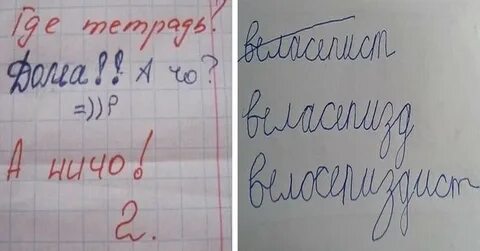 Где тетрадь!
Дома!! А чо?
=))Р
А ничо!
2.
веласепист
веласепизд
велосепиздист